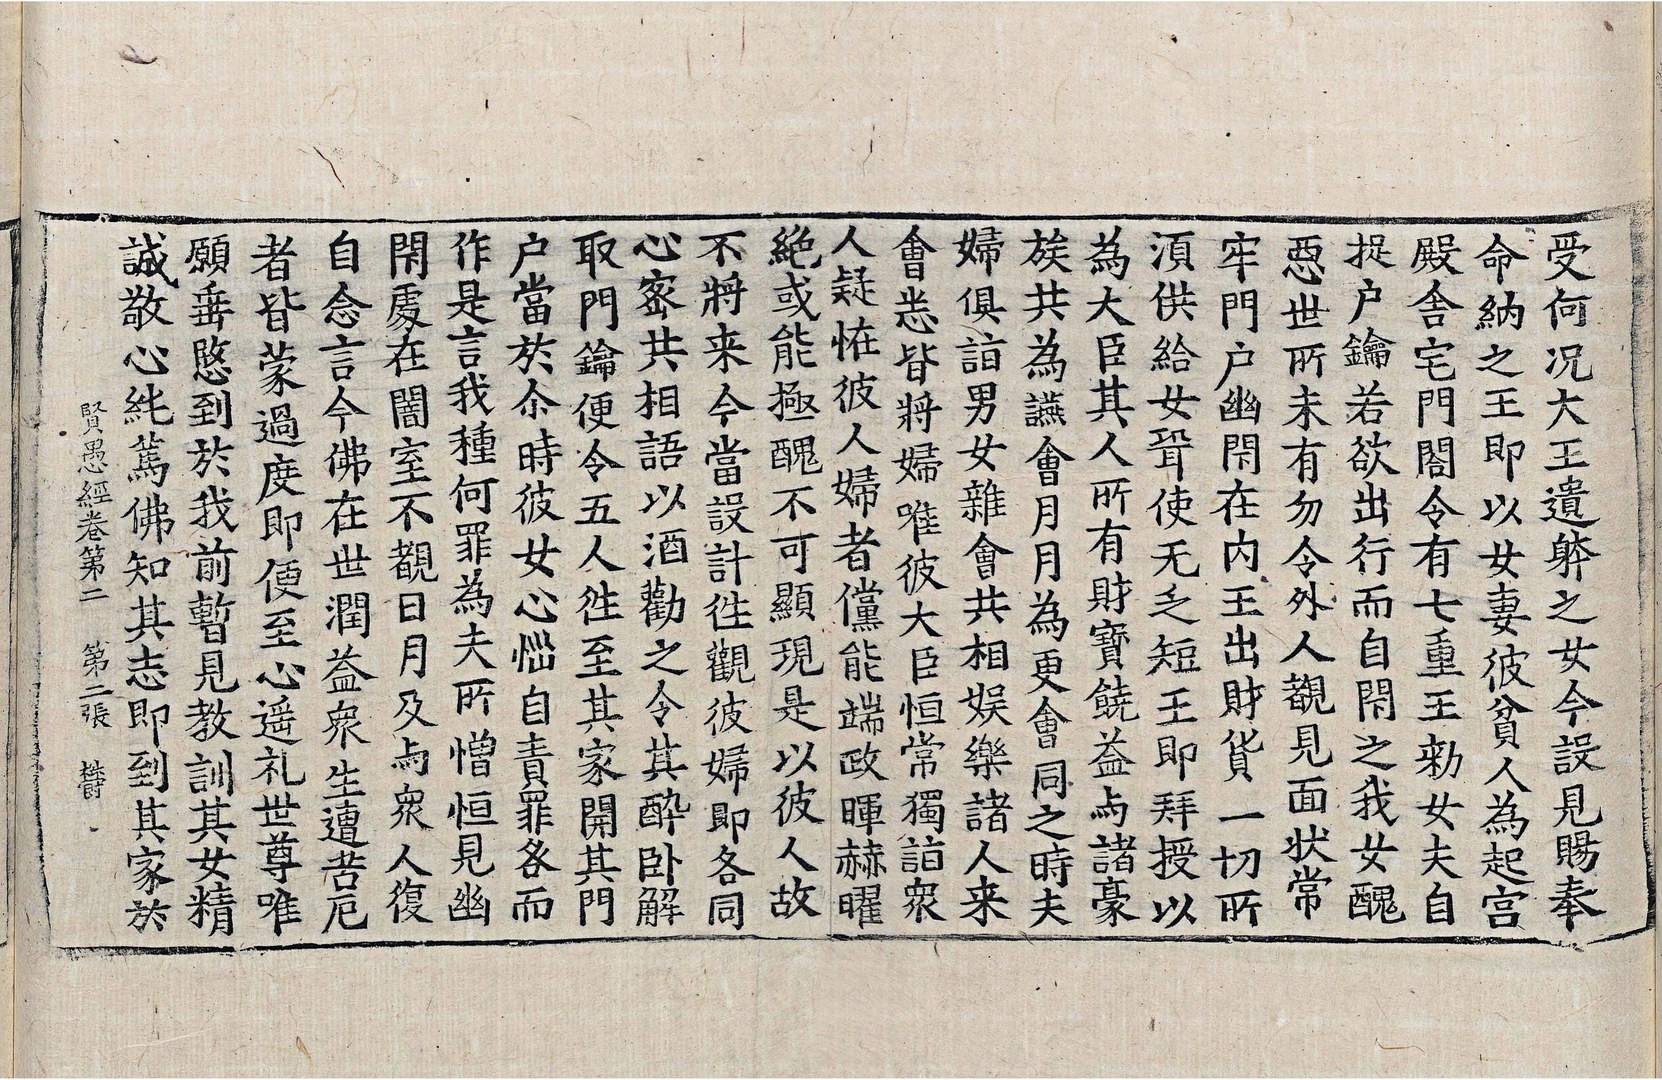 受何况大王遺躰之女今設見賜奉
命納之王即以女妻彼貧人為起宮
殿舍宅門閤令有七重王勑女夫自
捉户鑰若欲出行而自閇之我女醜
惡世所未有勿令外人覩見面状常
牢門户幽閇在内王出財貨一切所
湏供給女聟使无乏短王即拜授以
為大臣其人所有財寶饒益与諸豪
族共為讌會月月為更會同之時夫
婦俱詣男女雜會共相娛樂諸人来
會悉皆將婦唯彼大臣恒常獨詣衆
人疑恠彼人婦者儻能端政暉赫曜
絶或能極醜不可顯現是以彼人故
不將来今當設計徃觀彼婦即各同
心密共相語以酒勸之令其醉卧解
取門鑰便令五人徃至其家開其門
户當於尒時彼女心惱自責罪咎而
作是言我種何罪為夫所憎恒見幽
閇處在闇室不覩日月及与衆人復
自念言今佛在世潤益衆生遭苦厄
者皆蒙過度即便至心遥礼世尊唯
願垂愍到於我前暫見教訓其女精
誠敬心純篤佛知其志即到其家於
賢愚經卷第二 第二張 欝